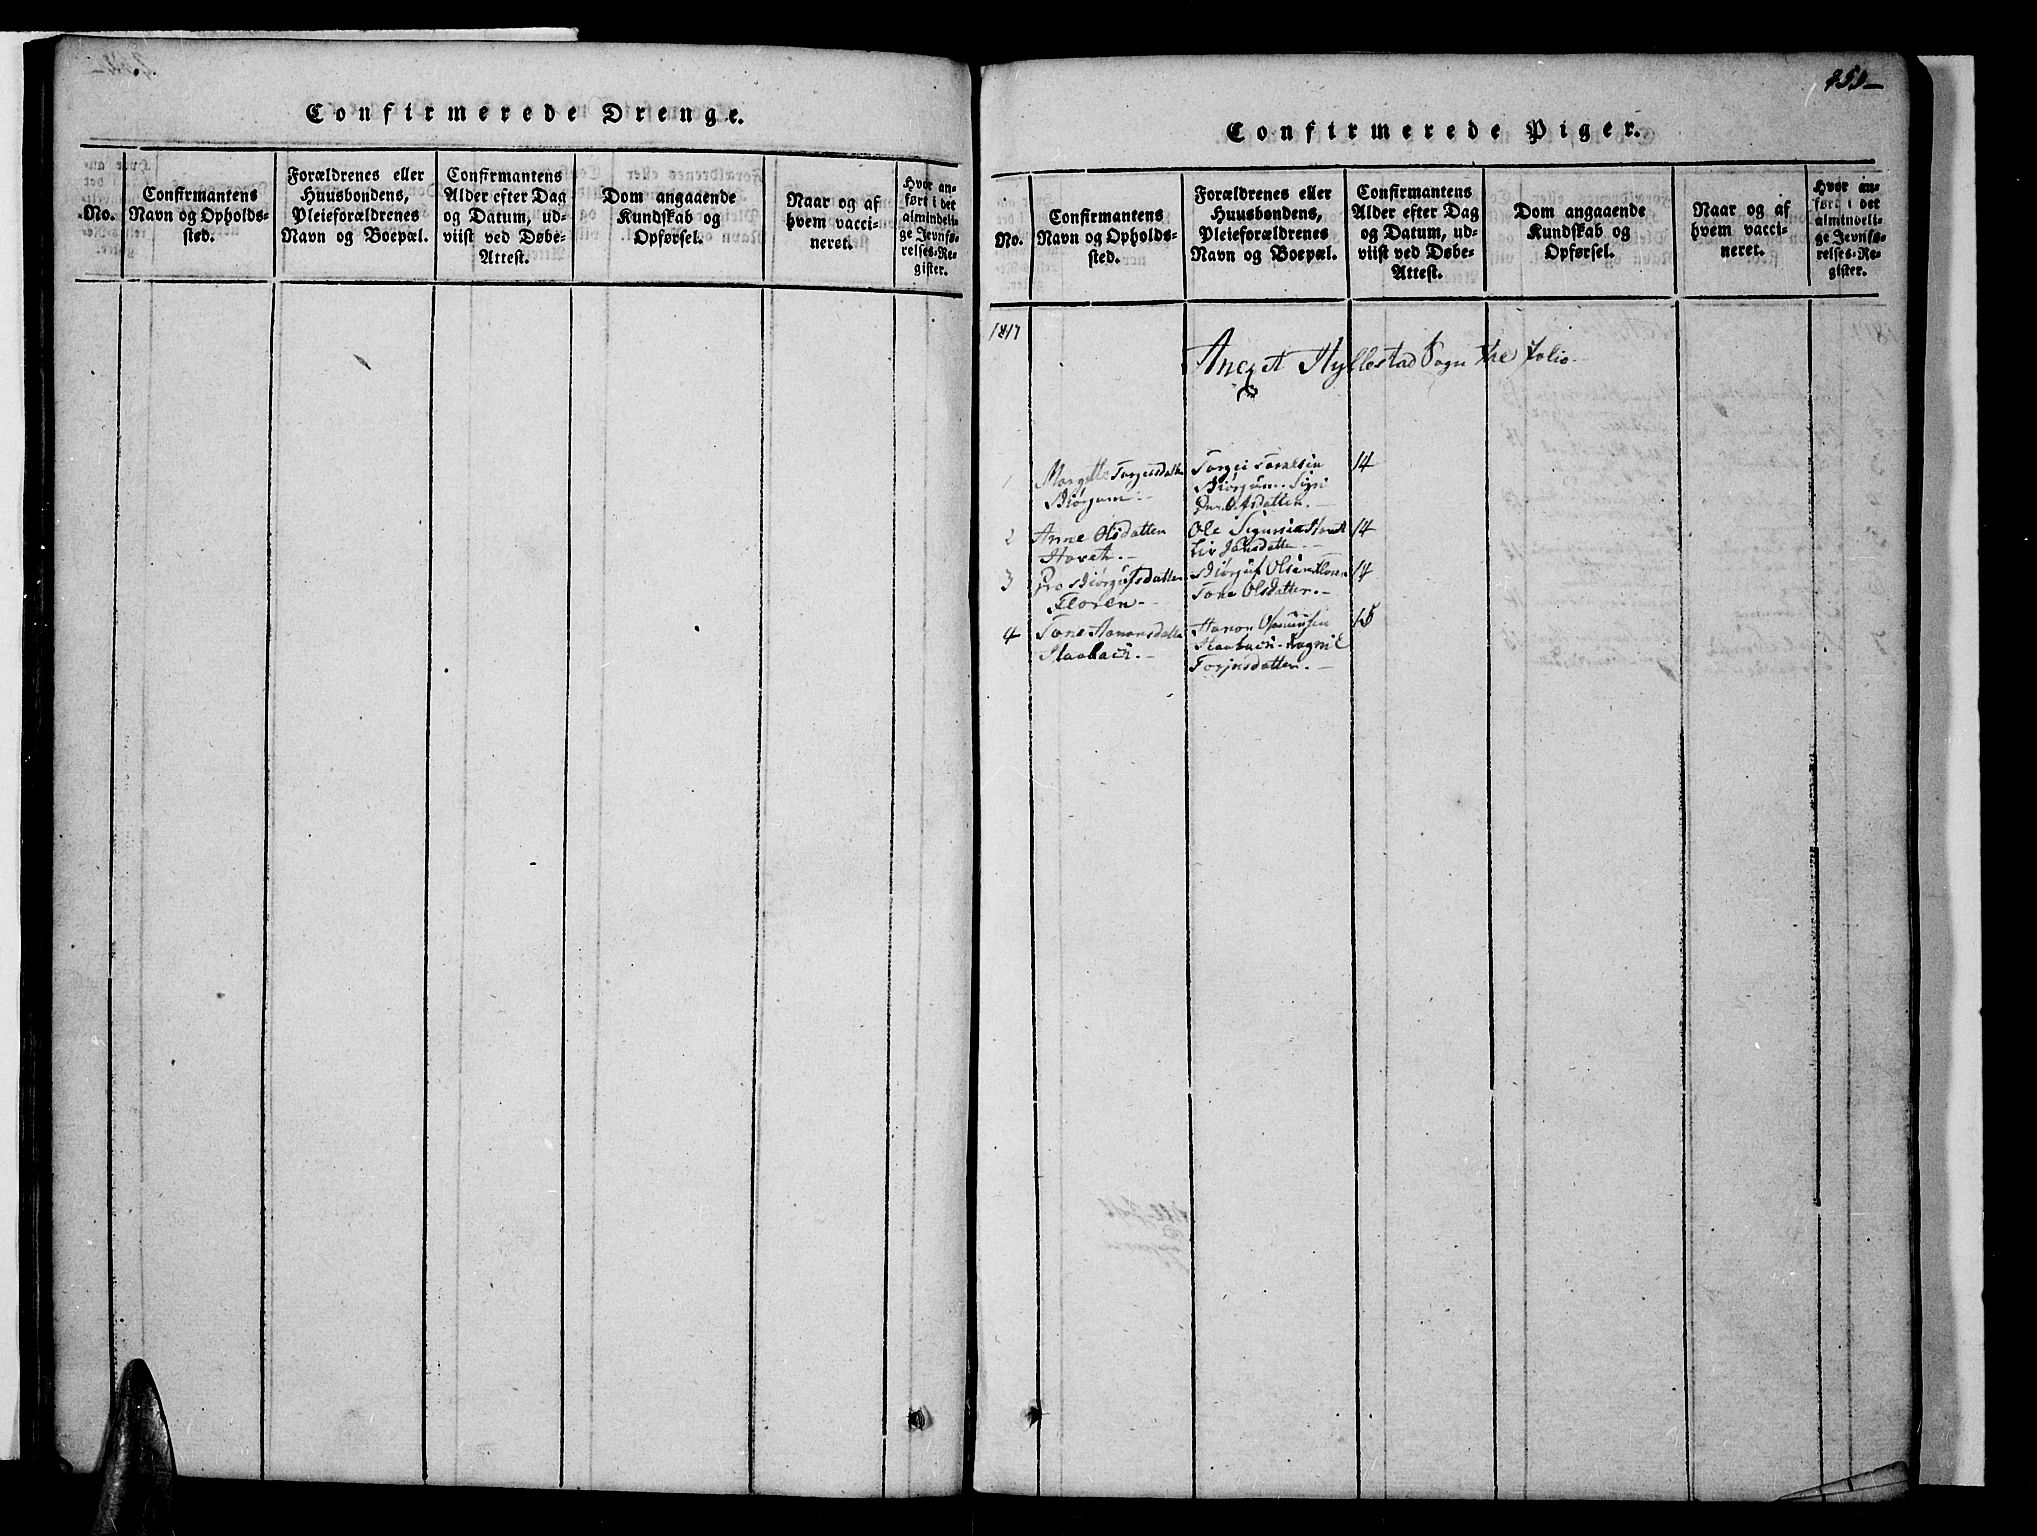 Confirmerede Drenge.
No.
Confirmantens
Navn og Opholds-
sted.
Forældrenes eller
Huusbondens,
Pleieforældrenes
Navn og Boepæl.
Confirmantens
Alder efter Dag
og Datum, ud-
viist ved Døbe-
Attest.
Dom angaaende
Kundskab og
Opførsel.
Naar og af
hvem vacci-
neret.
Hvor an-
ført i det
almindeli-
ge Jevnfø-
relses-Re-
gister.
Confirmerede Piger.
No.
Confirmantens
Navn og Opholds-
sted.
Forældrenes eller
Huusbondens,
Pleieforældrenes
Navn og Boepæl.
Confirmantens
Alder efter Dag
og Datum, ud-
viist ved Døbe-
Attest.
Dom angaaende
Kundskab og
Opførsel.
Naar og af
hvem vacci-
neret.
Hvor an-
ført i det
almindeli-
ge Jevnfø-
relses-Re-
gister.
1817
Hyllestad Sogn folio
1 Torgeisdatter
Biørgum
Torgei
Biørgum Sigri
14
2 Anne Olsdatten
Ole
Liv Jonsdatten
14
3 Gro Biørgufsdatten
Floren
Biørguf Olsen Floren
Tone Olsdatten
14
4 Tone
Haavor
Torjusdatten
15